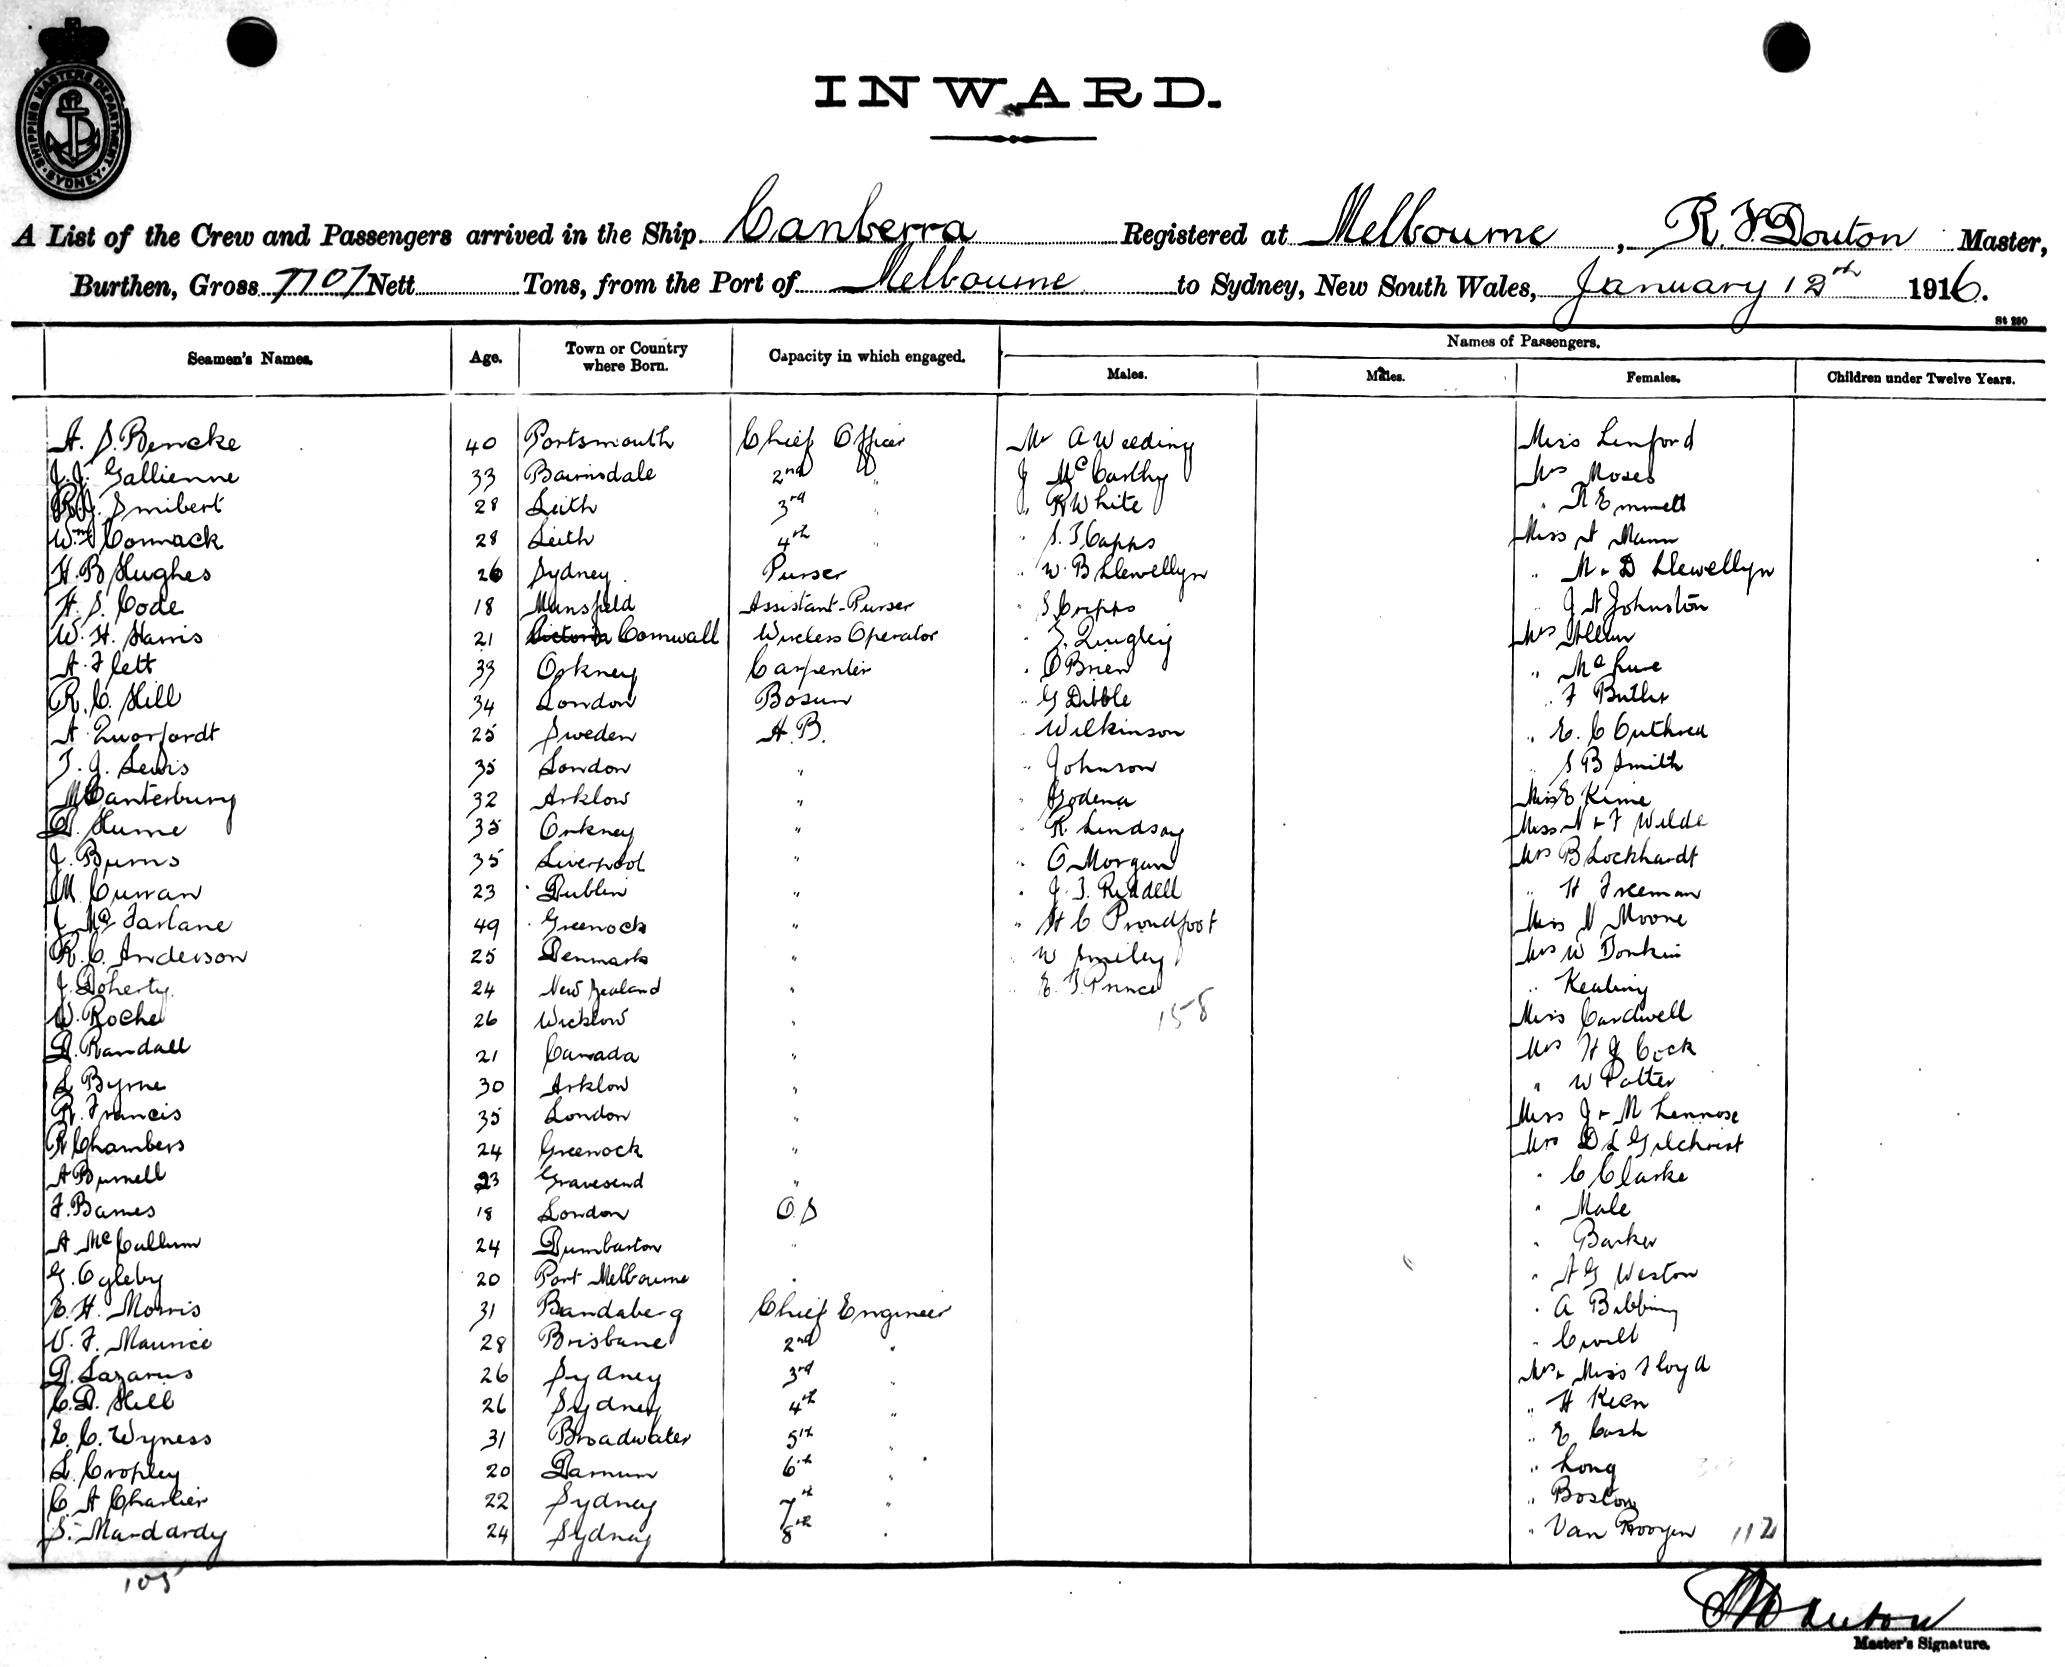 SHIPPING MASTERS DEPARTMENT · SYDNEY ·
INWARD.
A List of the Crew and Passengers arrived in the Ship Canberra Registered at Melbourne, R. F Douton Master,
Burthen, Gross 7707 Nett Tons, from the Port of Melbourne to Sydney, New South Wales, January 12th 1916.
St 250
Seamen's Names. Age. Town or Country where Born. Capacity in which engaged. Names of Passengers.
Males. Males. Females. Children under Twelve Years.
A. S. Bencke 40 Portsmouth Chief Officer Mr A Weeding Miss Linford
J. J. Gallienne 33 Bairnsdale 2nd " J McCarthy Mrs Moses
R. J. Smibert 28 Leith 3rd " " R White " R Emmett
Wm Cormack 28 Leith 4th " " S. T. Capps Miss A Mann
H. B Hughes 26 Sydney Purser " W. B Llewellyn " M & D Llewellyn
H. S. Code 18 Mansfield Assistant-Purser " S Cripps " J A Johnston
W. H. Harris 21 Victoria Cornwall Wireless Operator " Quigley Mrs Allan
A. Flett 33 Orkney Carpenter " O'Brien "
R. C. Hill 34 London Bosun " G Dibble " F Butler
A 25 Sweden A. B. " Wilkinson " E. C Cuthred
T. J. Lewis 35 London " " Johnson " S B Smith
M Canterbury 32 Arklow " " Miss E Kime
D. Hume 35 Orkney " " R Lindsay Miss N & F Wilde
J. Burns 35 Liverpool " " O Morgan Mrs B Lockhardt
M. Curran 23 Dublin " " J. T. Riddell " H Freeman
J McFarlane 49 Greenock " " H C Proudfoot Miss N Moore
R. C. Anderson 25 Denmark " " W Smiley Mrs W Donkin
J. Doherty 24 New Zealand " " E. T. Prince " Kealing
W. Roche 26 Wicklow " 158 Miss Cardwell
D. Randall 21 Canada " Mrs H J Cock
L Byrne 30 Arklow " " W Potter
R. Francis 35 London " Miss J & M Lennose
R Chambers 24 Greenock " Mrs D L Gilchrist
A Burnell 23 Gravesend " " C Clarke
F. Barnes 18 London O. S " Male
A McCallum 24 Dumbarton " " Barker
G. Ogleby 20 Port Melbourne " " A G Weston
E. H. Morris 31 Bandaberg Chief Engineer " A Bibbing
V. F. Maurice 28 Brisbane 2nd " "
D. Lazarus 26 Sydney 3rd " Mrs & Miss Floyd
C. D. Hill 26 Sydney 4th " " H Keen
E. C. Wyness 31 Broadwater 5th " " E Cash
L. Cropley 20 Darnum 6th " " Long
C A Charlier 22 Sydney 7th " " Boston
S. Mardardy 24 Sydney 8th " " Van Rooyen 112
105
Master's Signature.